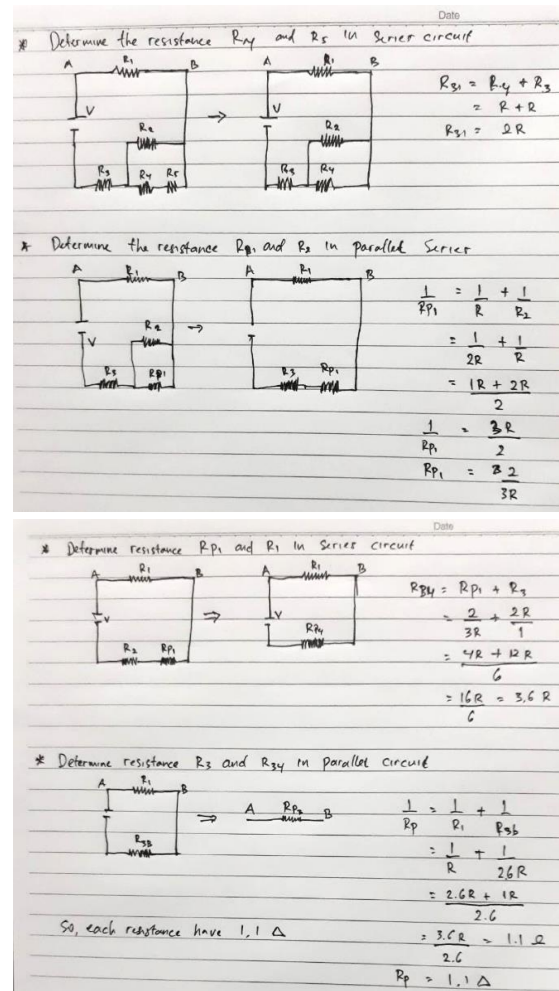 Date
* Determine the resistance R4 and R5 in Series circuit
A R1 B
V
R2
R3 R4 R5
→
A R1 B
V
R2
R3 R4
R31 = R4 + R3
= R + R
R31 = 2R
* Determine the resistance RP1 and R2 in parallel Series
A R1 B
V
R2
R3 RP1
→
A R1 B
R3 RP1
1/RP1 = 1/R + 1/R2
= 1/2R + 1/R
= 1R + 2R / 2
1/RP1 = 3R/2
RP1 = 2/3R
Date
* Determine resistance RP1 and R1 in Series circuit
A R1 B
V
R2 RP1
⇒
A R1 B
V
R34
R34 = RP1 + R3
= 2/3R + 2R/1
= 4R + 12R / 6
= 16R/6 = 3,6 R
* Determine resistance R3 and R34 in parallel circuit
A R1 B
R3b
⇒
A RP2 B
1/RP = 1/R1 + 1/R3b
= 1/R + 1/2.6R
= 2.6R + 1R / 2.6
= 3.6R/2.6 = 1.1 Ω
RP = 1,1 Δ
So, each resistance have 1,1 Δ